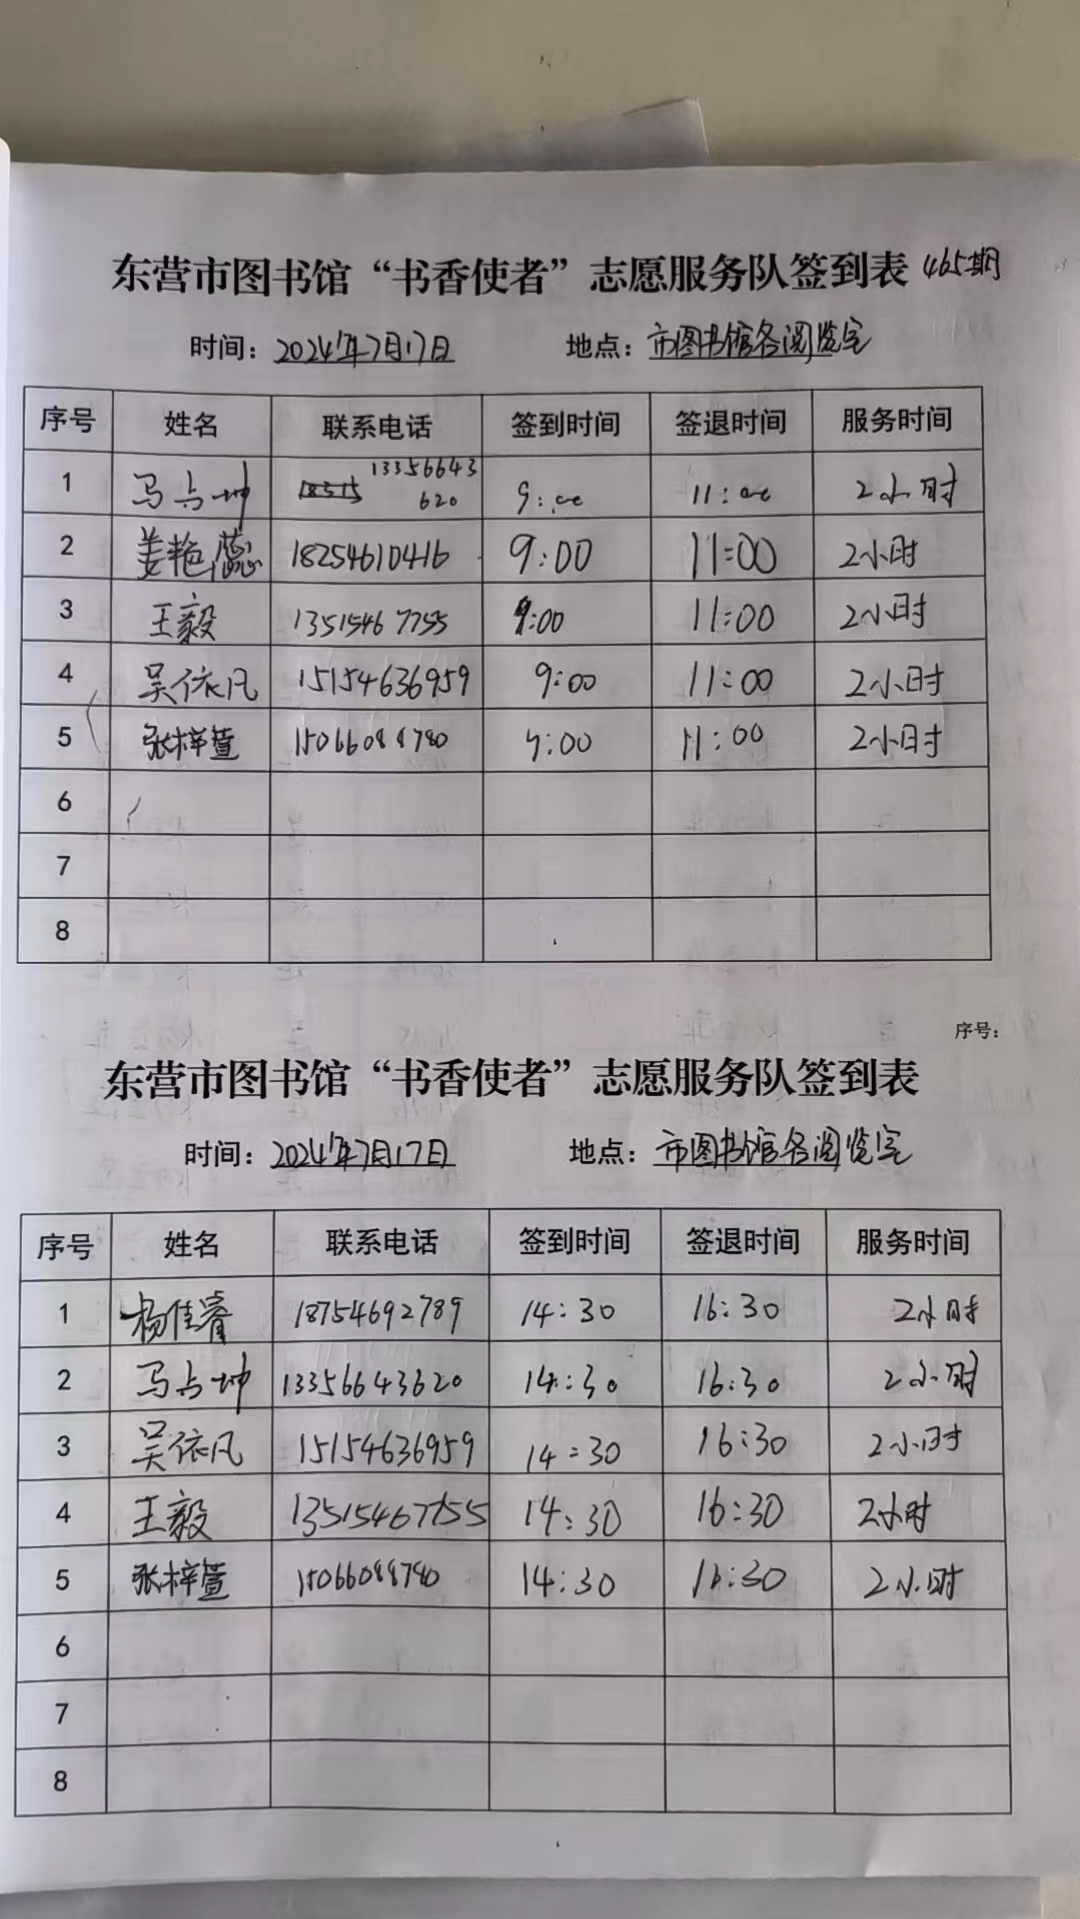 东营市图书馆“书香使者”志愿服务队签到表 465期
时间：2024年7月17日 地点：市图书馆各阅览室
序号 姓名 联系电话 签到时间 签退时间 服务时间
1 马占坤 13356643620 9:00 11:00 2小时
2 姜艳蕊 18254610416 9:00 11:00 2小时
3 王毅 13515467755 9:00 11:00 2小时
4 吴依凡 15154636959 9:00 11:00 2小时
5 张梓萱 15066088780 9:00 11:00 2小时
6
7
8
序号：
东营市图书馆“书香使者”志愿服务队签到表
时间：2024年7月17日 地点：市图书馆各阅览室
序号 姓名 联系电话 签到时间 签退时间 服务时间
1 杨佳睿 18754692789 14:30 16:30 2小时
2 马占坤 13356643620 14:30 16:30 2小时
3 吴依凡 15154636959 14:30 16:30 2小时
4 王毅 13515467755 14:30 16:30 2小时
5 张梓萱 15066088780 14:30 16:30 2小时
6
7
8